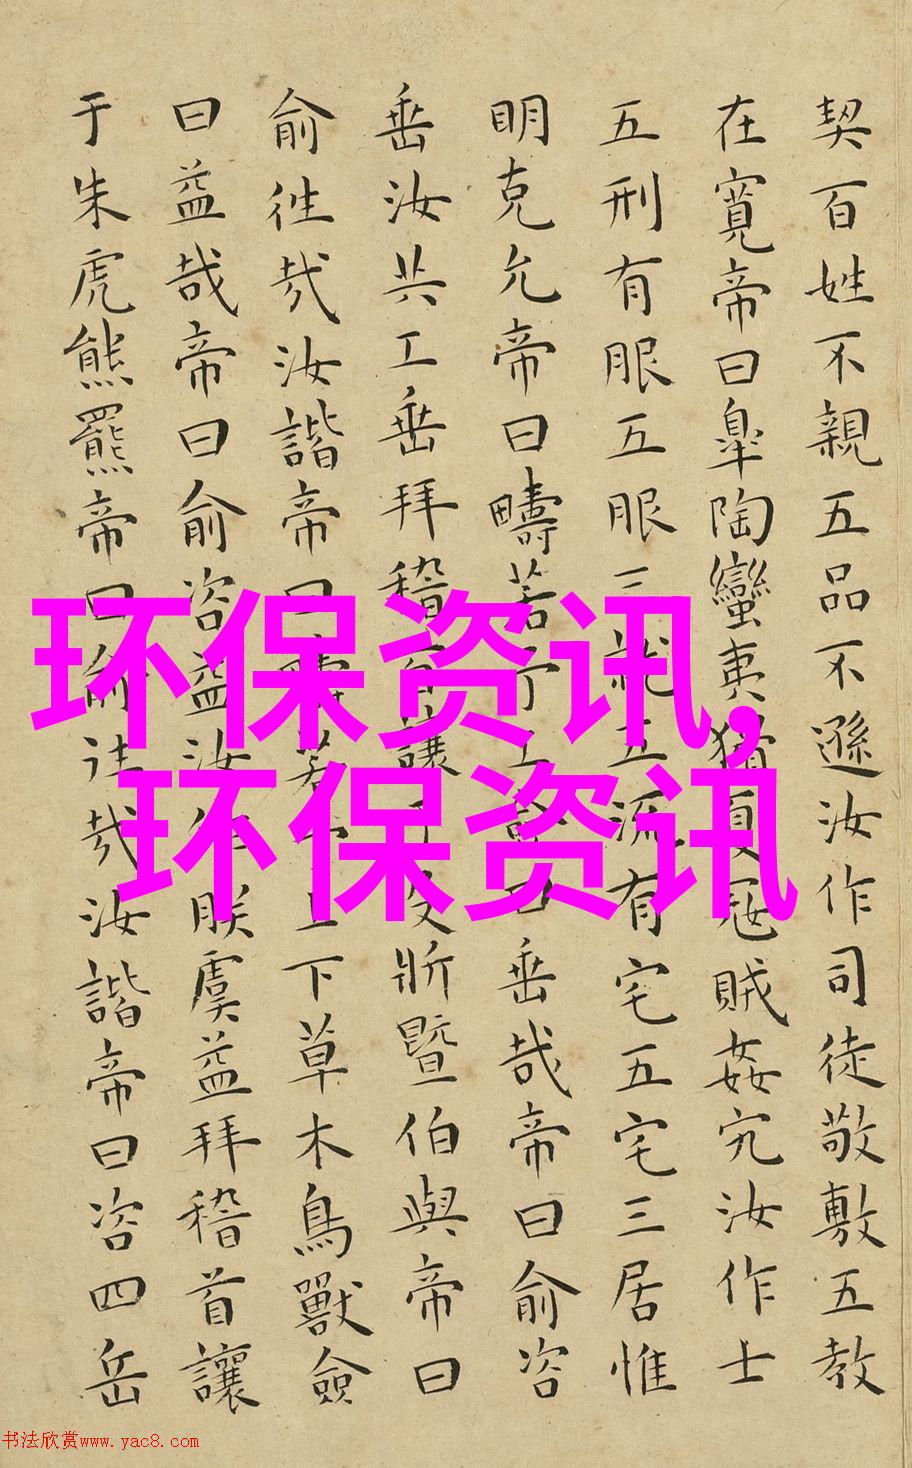 契百姓不親五品不遜汝作司徒敬敷五教
在寬帝曰臯陶蠻夷猾夏冦賊姦宄汝作士
五刑有服五服三就五流有宅五宅三居惟
明克允帝曰疇若予工僉曰垂哉帝曰俞咨
垂汝共工垂拜稽首讓于殳斨暨伯與帝曰
俞往哉汝諧帝曰疇若予上下草木鳥獸僉
曰益哉帝曰俞咨益汝作朕虞益拜稽首讓
于朱虎熊羆帝曰俞往哉汝諧帝曰咨四岳
环保资讯,
环保资讯
书法欣赏www.yac8.com